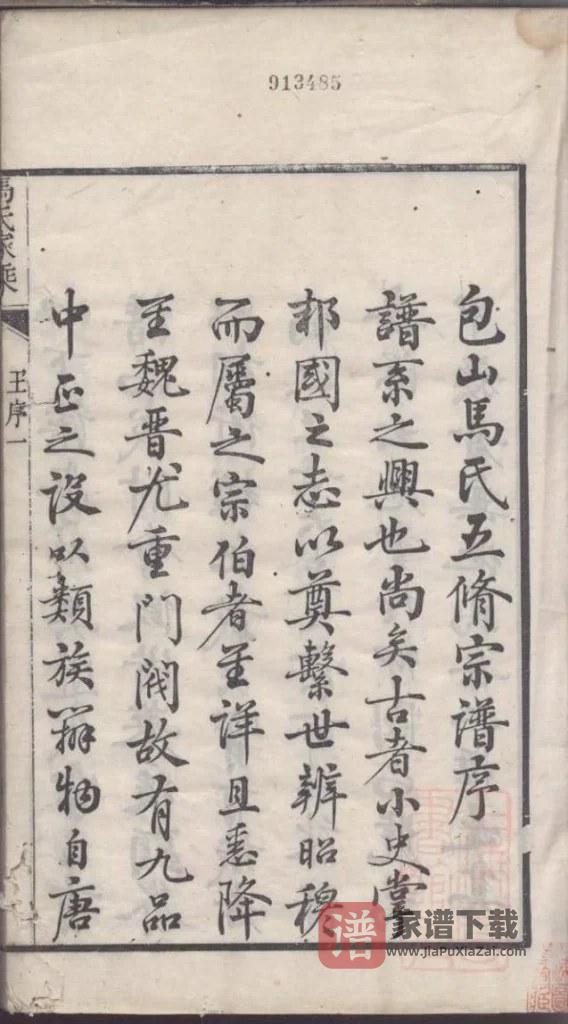 913485
包山馬氏五脩宗譜序
譜系之興也尚矣古者小史掌
邦國之志以奠繫世辨昭穆
而屬之宗伯者至詳且悉降
至魏晋尤重門閥故有九品
中正之設以類族辨物自唐
馬氏家乘
王序一
谱
家谱下载
www.jiaPuXiaZai.com